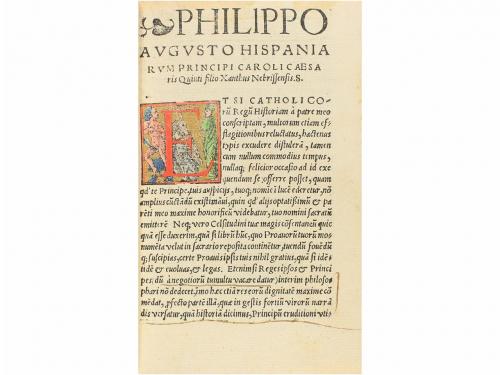 PHILIPPO
AVGVSTO HISPANIA
RVM PRINCIPI CAROLI CAESA
ris Quinti filio Xanthus Nebrissensis. S.
E
TSI CATHOLICO-
rũ Regũ Historiam à patre meo
conscriptam, multorum etiam ef-
flagitionibus reluctatus, hactenus
typis excudere distulerã, tamen
cum nullum commodius tempus,
nullaq; felicior occasio ad id exe-
quendum se offerre posset, quam
qđ te Principe, tuis auspicijs, tuoq; nomiẽ ĩ lucẽ ederetur, nõ
amplius cũctãdũ existimãui, quin qđ alijs optatissimũ et pa-
rẽti meo maxime honorificũ videbatur, tuo nomini sacratũ
emitterẽ. Neq; vero Celsitudini tuæ magis cõsentaneũ quic
quã esse duxerim, quã si librũ hũc, quo Proauorũ tuorũ mo-
numẽta velut in sacrario reposita cõtinẽtur, tuendũ fouẽdũ
q; suscipias, certe Proauis ipsis tuis nihil gratius, quã si idẽ-
tidẽ et euoluas, et legas. Etenim si Reges ipsos et Princi-
pes (dũ à negotiorũ tumultu vacare datur) interim philoso-
phari nõ dedecet, imo hæc etiã res eorũ dignitatẽ maxime cõ-
mẽdat, pfecto parte illã, quæ in gestis fortiũ virorũ narrã
dis versatur, quã historiã dicimus, Principũ eruditioni vti-